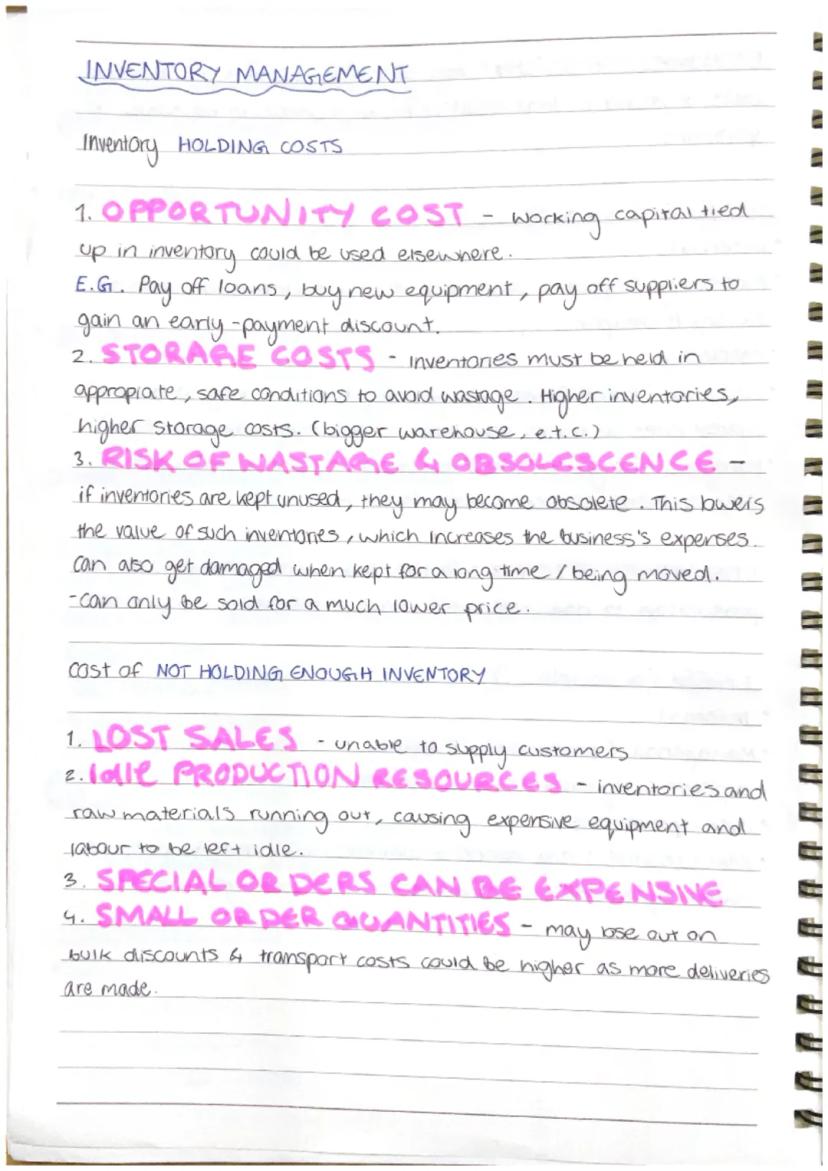 INVENTORY MANAGEMENT
Inventory HOLDING COSTS
1. OPPORTUNITY COST - working capital tied
up in inventory could be used elsewhere.
E.G. Pay off loans, buy new equipment, pay off suppliers to
gain an early-payment discount.
2. STORAGE COSTS - Inventories must be held in
appropiate, safe conditions to avoid wastage. Higher inventories,
higher storage costs. (bigger warehouse, e.t.c.)
3. RISK OF WASTAGE & OBSOLESCENCE -
if inventories are kept unused, they may become obsolete. This lowers
the value of such inventories, which increases the business's expenses.
Can also get damaged when kept for a long time / being moved.
-Can only be sold for a much lower price.
Cost of NOT HOLDING ENOUGH INVENTORY
1. LOST SALES - unable to supply customers
2. Idle PRODUCTION RESOURCES - inventories and
raw materials running out, causing expensive equipment and
labour to be left idle.
3. SPECIAL ORDERS CAN BE EXPENSIVE
4. SMALL ORDER QUANTITIES - may lose out on
bulk discounts & transport costs could be higher as more deliveries
are made.